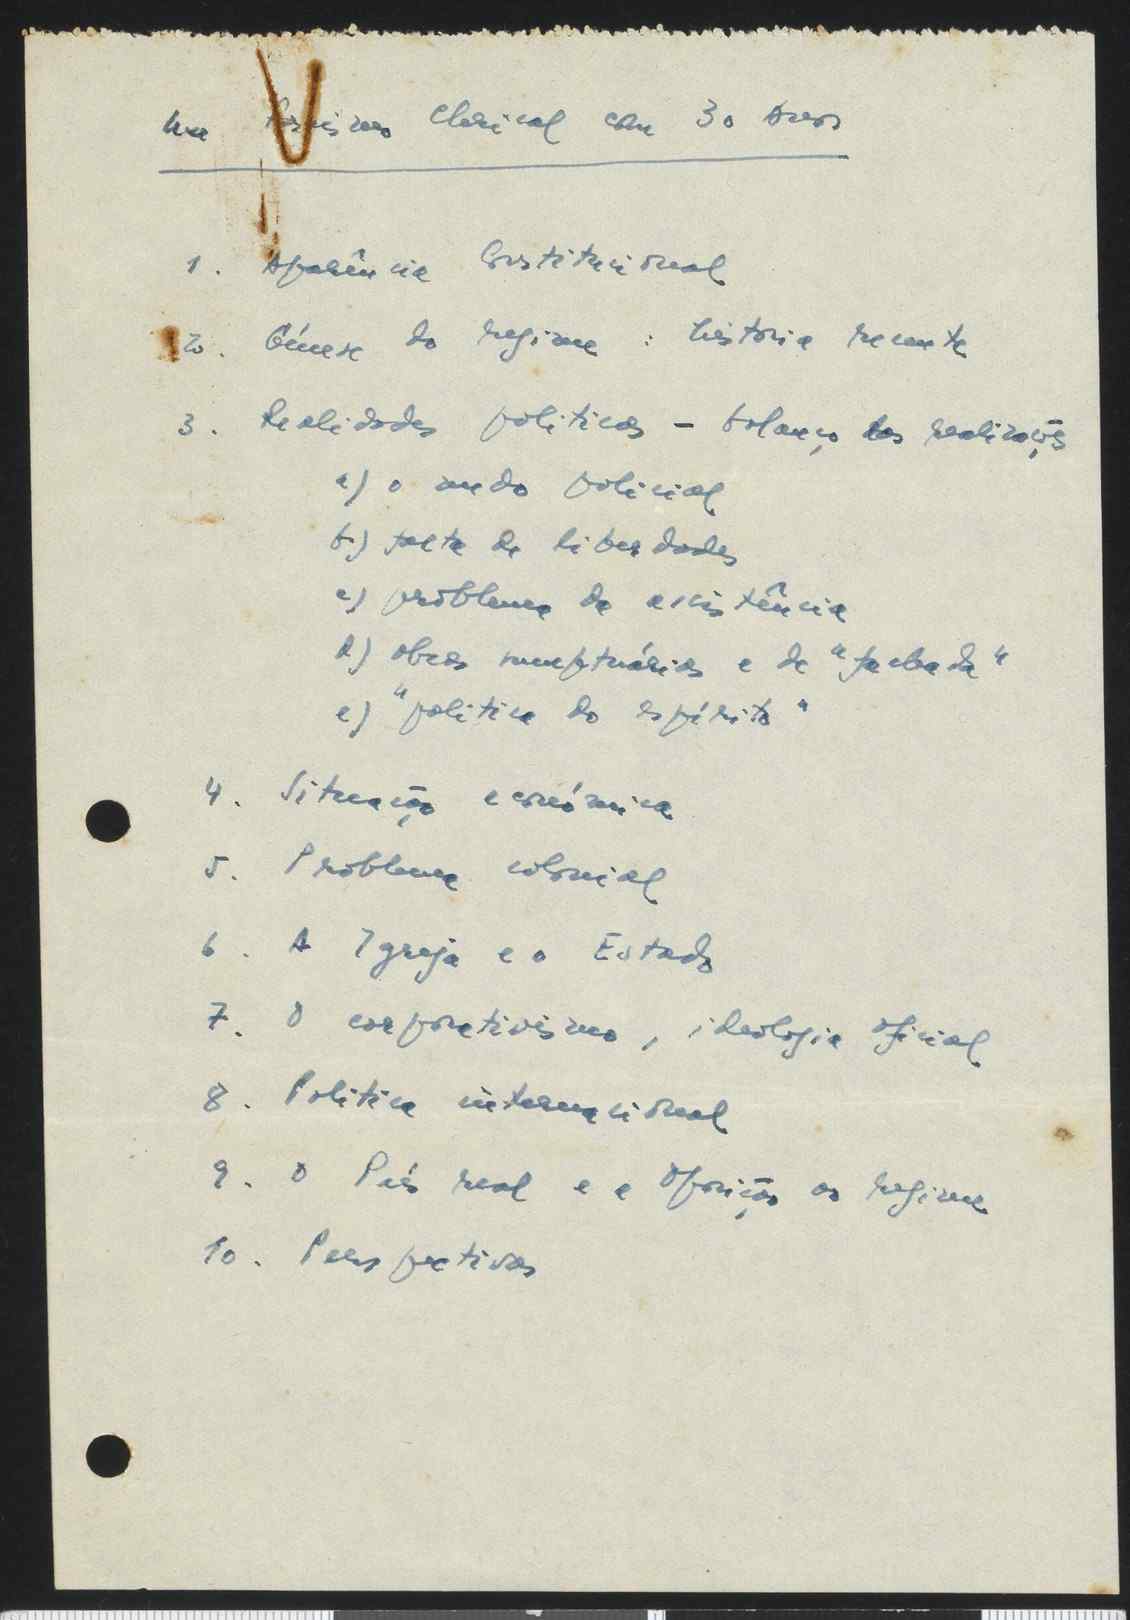 Um Fascismo Clerical com 30 Anos
1. Aparência Constitucional
2. Génese do regime : história recente
3. Realidades políticas - balanço das realizações
a) o medo policial
b) falta de liberdades
c) problema da assistência
d) obras sumptuárias e de "fachada"
e) "política do espírito"
4. Situação económica
5. Problema colonial
6. A Igreja e o Estado
7. O corporativismo, ideologia oficial
8. Política internacional
9. O País real e a Oposição ao regime
10. Perspectivas